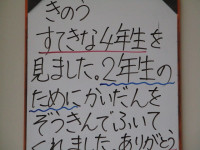 きのう
すてきな4年生を
見ました。2年生の
ためにかいだんを
ぞうきんでふいて
くれました。ありがとう